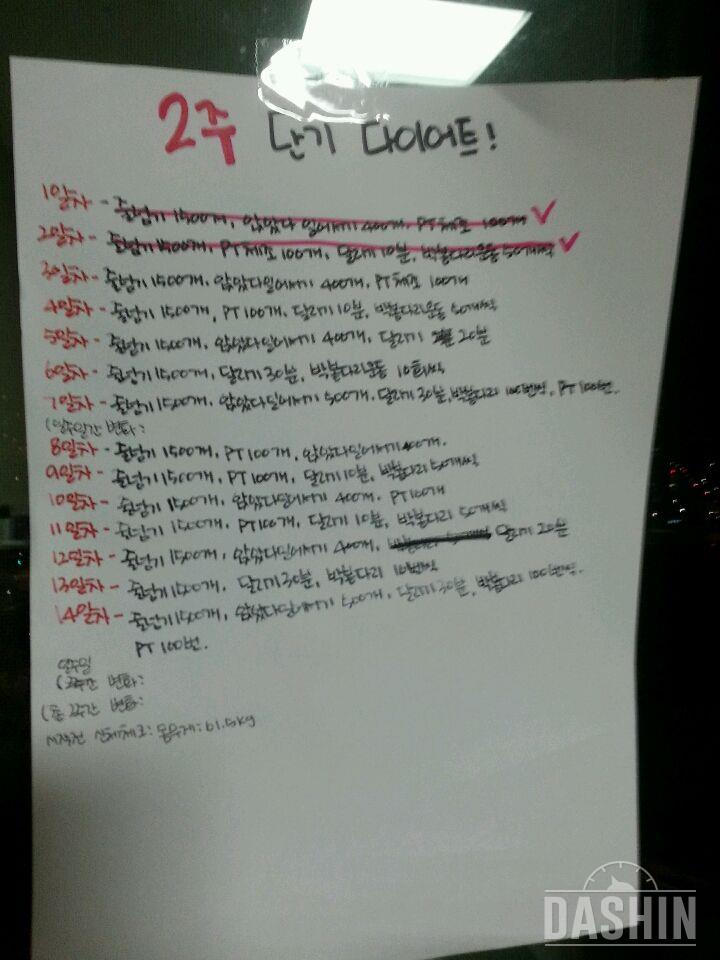 2주 단기 다이어트!
1일차 - 줄넘기 1500개, 앉았다 일어나기 400개, PT체조 100개 ✓
2일차 - 줄넘기 1500개, PT체조 100개, 달리기 10분, 박봄다리운동 50개씩 ✓
3일차 - 줄넘기 1500개, 앉았다일어서기 400개, PT체조 100개
4일차 - 줄넘기 1500개, PT 100개, 달리기 10분, 박봄다리운동 50개씩
5일차 - 줄넘기 1500개, 앉았다일어서기 400개, 달리기 20분
6일차 - 줄넘기 1500개, 달리기 30분, 박봄다리운동 10회씩
7일차 - 줄넘기 1500개, 앉았다일어서기 500개, 달리기 30분, 박봄다리 100번씩, PT 100번.
(일주일간 변화:
8일차 - 줄넘기 1500개, PT 100개, 앉았다일어서기 400개.
9일차 - 줄넘기 1500개, PT 100개, 달리기 10분, 박봄다리 50개씩
10일차 - 줄넘기 1500개, 앉았다일어서기 400개, PT 100개
11일차 - 줄넘기 1500개, PT 100개, 달리기 10분, 박봄다리 50개씩
12일차 - 줄넘기 1500개, 앉았다일어서기 400개, 달리기 20분
13일차 - 줄넘기 1500개, 달리기 30분, 박봄다리 10번씩
14일차 - 줄넘기 1500개, 앉았다일어서기 500개, 달리기 30분, 박봄다리 100번씩.
PT 100번.
일주일
(2주간 변화:
(총 2주간 변화:
시작전 신체체크: 몸무게: 61.5kg
DASHIN